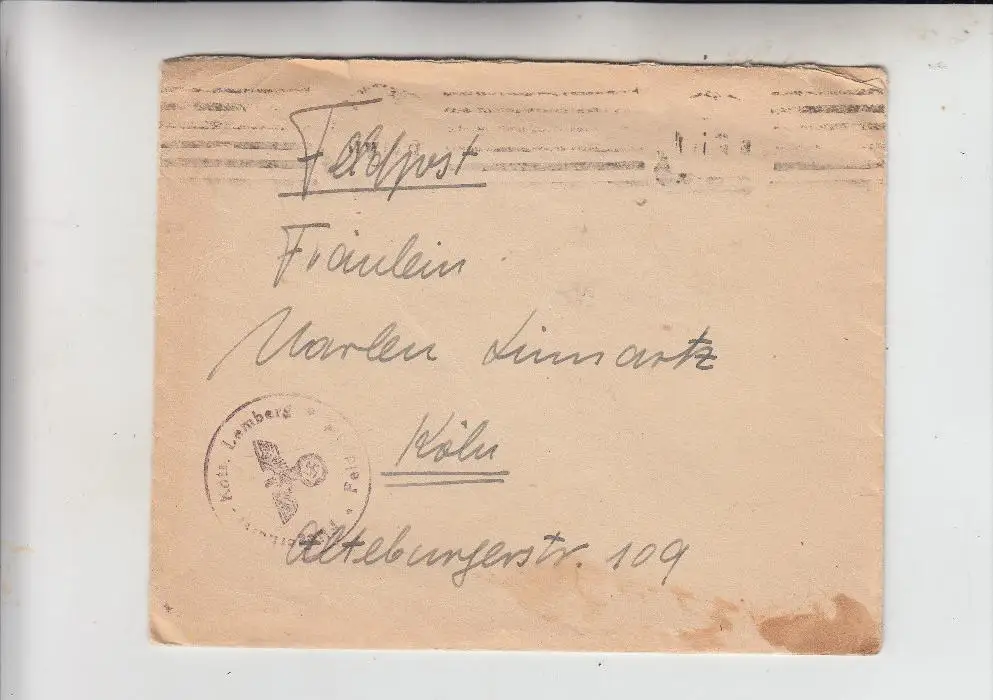 Feldpost
Fräulein
Marlen Linnartz
Köln
Alteburgerstr. 109
Lemberg